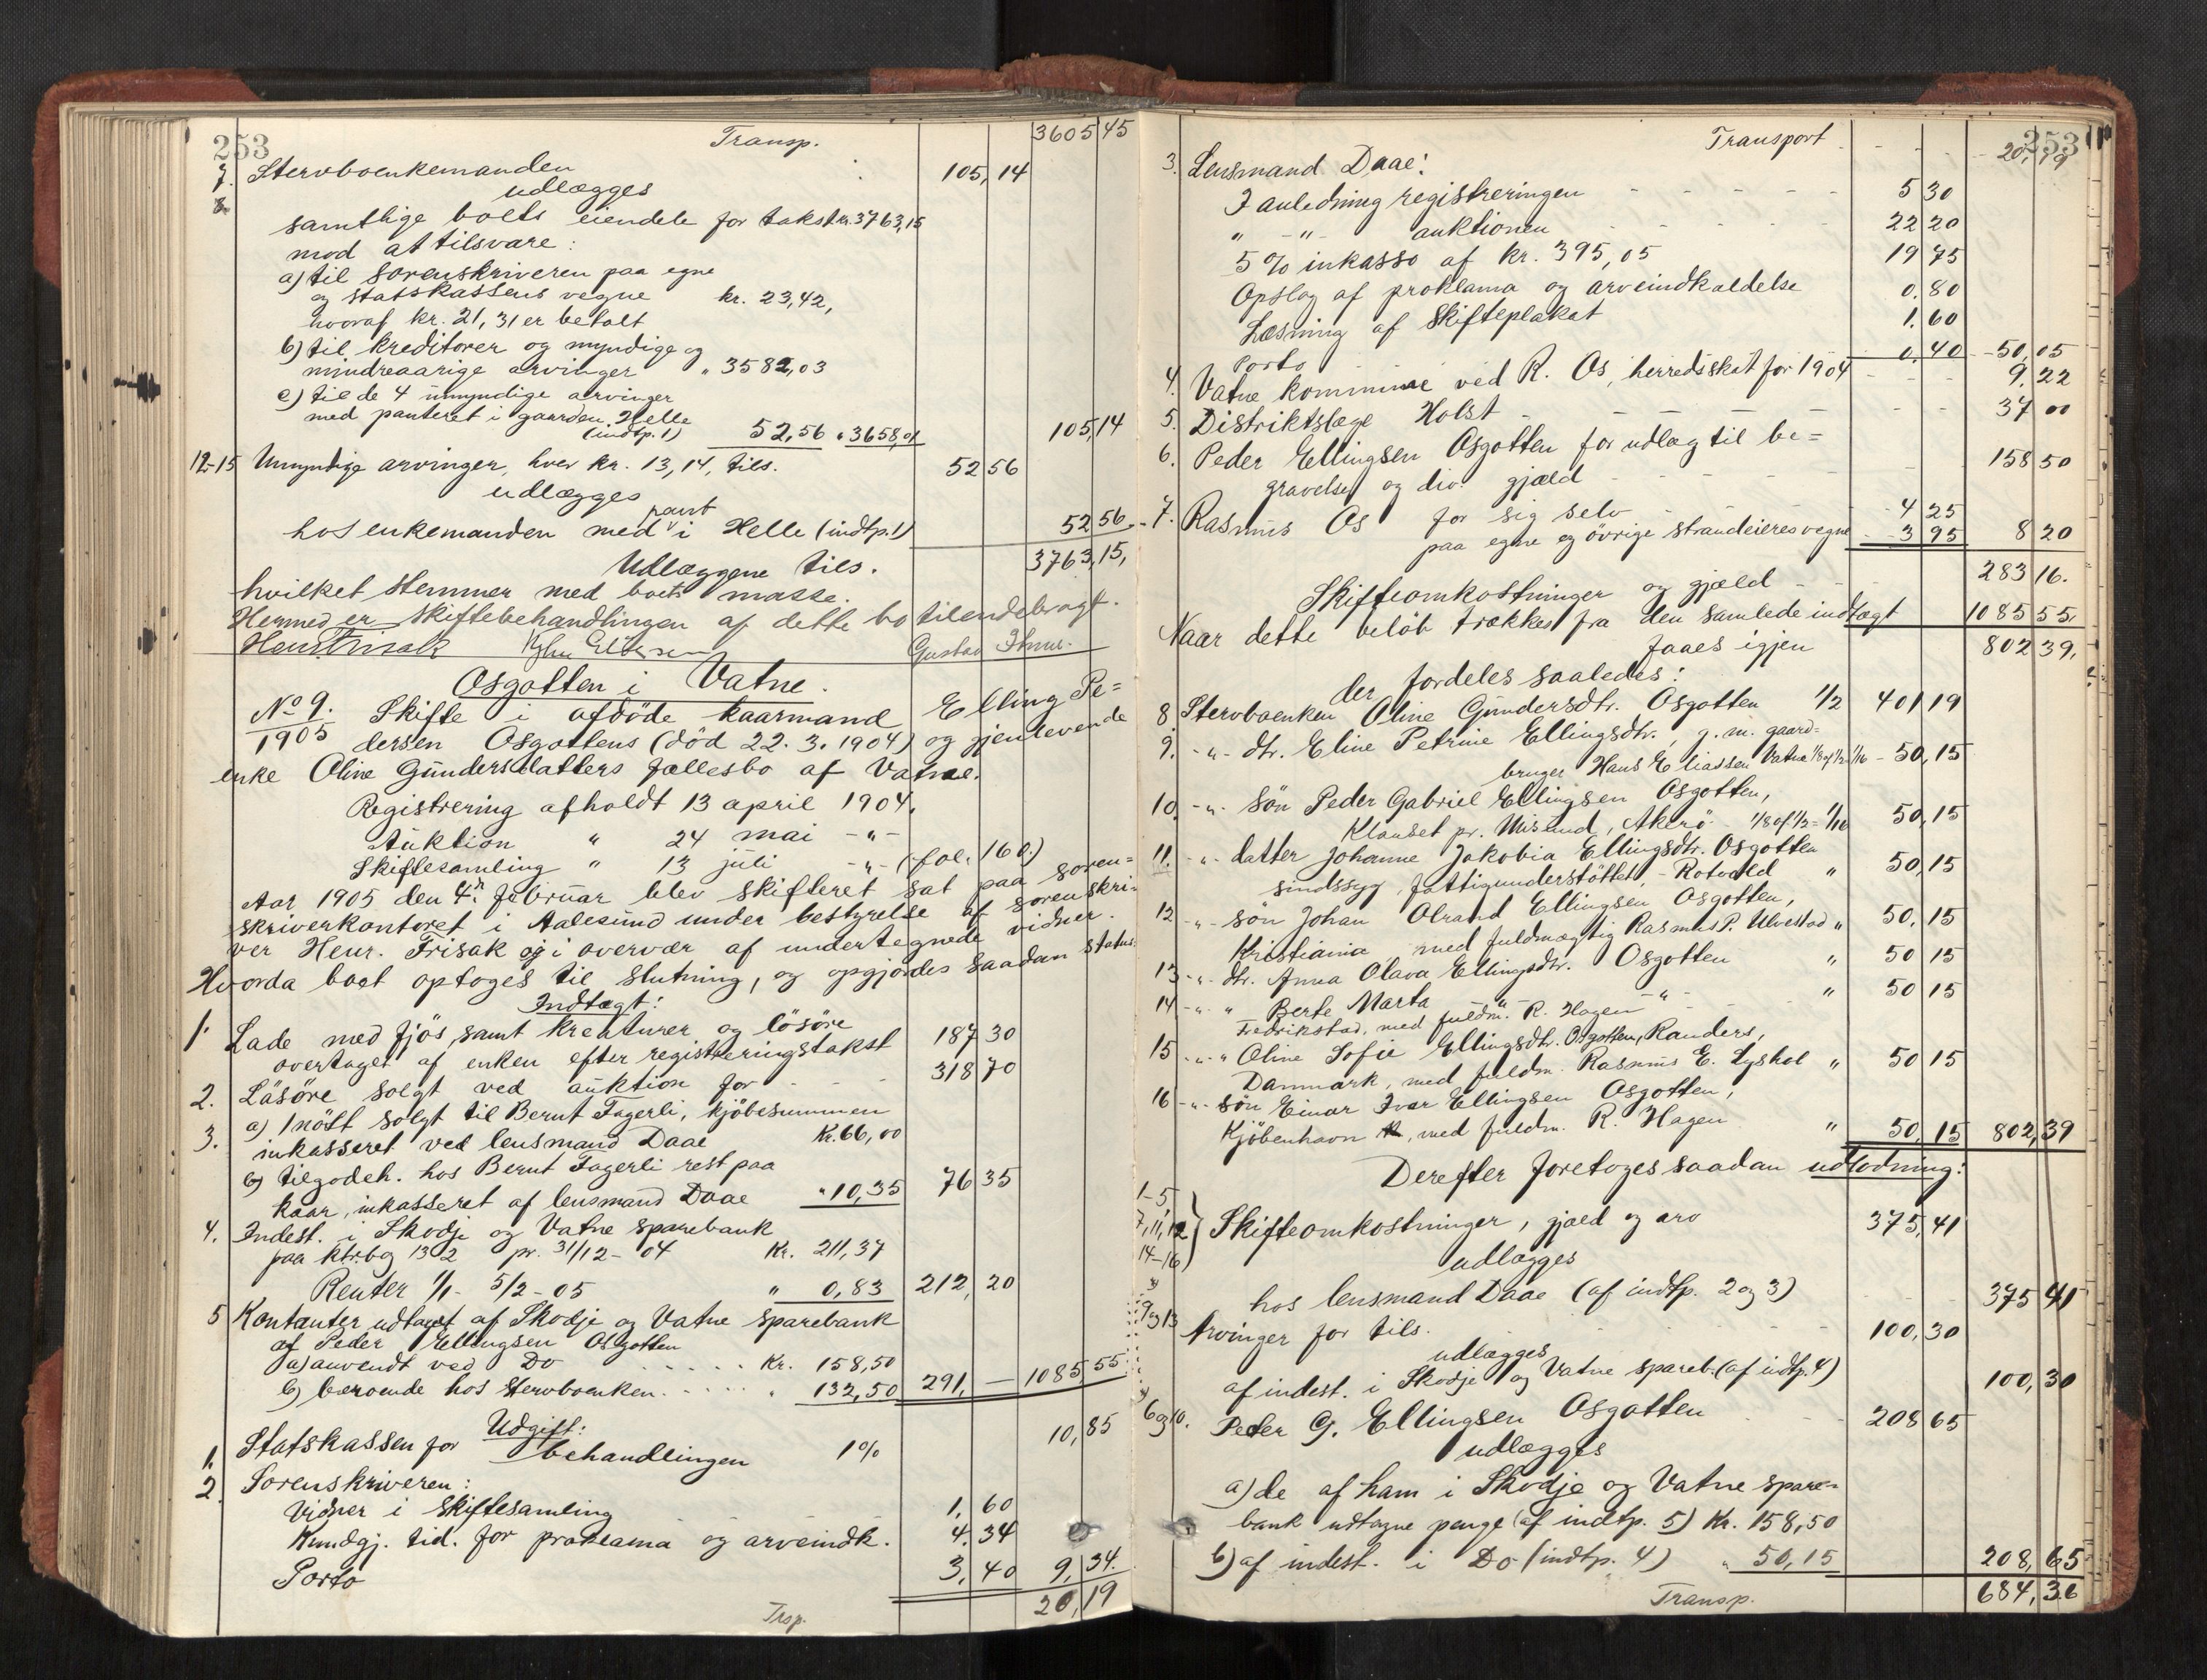 253
Transp. 3605 45
7. Stervboenkemanden 105,14
8. udlægges
samtlige boets eiendele for takst kr. 3763,15
mod at tilsvare:
a) til sorenskriveren paa egne
og statskassens vegne kr. 23,42,
hvoraf kr. 21,31 er betalt
b) til kreditorer og myndige og
mindreaarige arvinger " 3582,03
c) til de 4 umyndige arvinger
med panteret i gaarden Helle
(indtp. 1) 52,56 " 3658,01 105,14
12-15 Umyndige arvinger, hver kr. 13,14, tils. 52 56
udlægges
pant
hos enkemanden med i Helle (indtp. 1) 52 56
Udlæggene tils. 3763,15,
hvilket stemmer med boets masse.
Hermed er skiftebehandlingen af dette bo tilendebragt.
Henr. Frisak Gustav
Osgotten i Vatne.
No 9. Skifte i afdöde kaarmand Elling Pe=
1905 dersen Osgottens (död 22.3.1904) og gjenlevende
enke Oline Gundersdatters fællesbo af Vatne.
Registrering afholdt 13 april 1904.
Auktion " 24 mai -"-
Skiftesamling " 13 juli -"- (fol. 160.)
Aar 1905 den 4de februar blev skifteret sat paa soren=
skriverkontoret i Aalesund under bestyrelse af sorenskri=
ver Henr. Frisak og i overvær af undertegnede vidner.
Hvorda boet optoges til slutning, og opgjordes saadan status:
Indtægt:
1. Lade med fjös, samt kreaturer og lösöre
overtaget af enken efter registreringstakst 187 30
2. Lösöre solgt ved auktion for 318 70
3. a) 1 nöst solgt til Bernt Fagerli, kjöbesummen
inkasseret ved lensmand Daae Kr. 66,00
b) tilgodeh. hos Bernt Fagerli rest paa
kaar, inkasseret af lensmand Daae " 10,35 76 35
4. Indest. i Skodje og Vatne sparebank
paa ktrbog 1302 pr. 31/12-04 Kr. 211,37
Renter 1/1 - 5/2-05 " 0,83 212,20
5 Kontanter udtaget af Skodje og Vatne sparebank
af Peder Ellingsen Osgotten
a) anvendt ved Do Kr. 158,50
b) beroende hos stervboenken " 132,50 291,— 1085,55
Udgift:
1. Statskassen for behandlingen 1% 10,85
2. Sorenskriveren:
Vidner i skiftesamling 1,60
Kundgj. tid. for proklama og arveindk. 4.34
Porto 3,40 9,34.
Trsp. 20,19
253
Transport 20,19
3. Lensmand Daae:
I anledning registreringen 5 30
" -"- auktionen 22 20
5% inkasso af kr. 395,05 19 75
Opslag af proklama og arveindkaldelse 0.80
Læsning af skifteplakat 1.60
Porto 0.40 50,05
4. Vatne kommune ved R. Os, herredsskat for 1904 9,22
5. Distriktslæge Holst 37 00
6. Peder Ellingsen Osgotten for udlæg til be=
gravelse og div. gjæld 158 50
7. Rasmus Os for sig selv 4 25
paa egne og övrige strandeieres vegne 3 95 8 20
Skifteomkostninger og gjæld 283 16.
Naar dette belöb trækkes fra den samlede indtægt 1085 55,
faaes igjen 802 39,
der fordeles saaledes:
8 Stervboenken Oline Gundersdtr. Osgotten 1/2 401 19
9. -"- dtr. Eline Petrine Ellingsdtr., g. m. gaard=
bruger Hans Eliassen Vatne 1/8 af 1/2 = 1/16 50,15
10, -"- sön Peder Gabriel Ellingsen Osgotten,
Klauset pr. Misund, Akerö 1/8 af 1/2 = 1/16 50,15
11. -"- datter Johanne Jakobia Ellingsdtr. Osgotten
sindssyg, fattigunderstöttet, - Rotvold " 50,15
12 -"- sön Johan Olrand Ellingsen Osgotten,
Kristiania med fuldmægtig Rasmus P. Ulvestad " 50,15
13 -"- dtr. Anna Olava Ellingsdtr. Osgotten " 50 15
14 -"- " Berte Marta -"- -"- " 50 15
Fredrikstad, med fuldm. R. Hagen
15 -"- " Oline Sofie Ellingsdtr. Osgotten, Randers,
Danmark, med fuldm. Rasmus E. Lyshol " 50 15
16 -"- sön Einar Ivar Ellingsen Osgotten,
Kjöbenhavn, med fuldm. R. Hagen " 50,15 802,39
Derefter foretoges saadan udlodning:
1-5
7,11,12 } Skifteomkostninger, gjæld og arv 375,41
14-16
udlægges
hos lensmand Daae (af indtp. 2 og 3) 375 41
9 og 13 Arvinger for tils. 100,30
udlægges
af indest. i Skodje og Vatne spareb. (af indtp. 4) 100,30
6 og 10. Peder G. Ellingsen Osgotten 208 65
udlægges
a) de af ham i Skodje og Vatne spare=
bank udtagne penge (af indtp. 5) Kr. 158,50
b) af indest. i Do (indtp. 4) " 50,15 208,65
Transp. 684,36